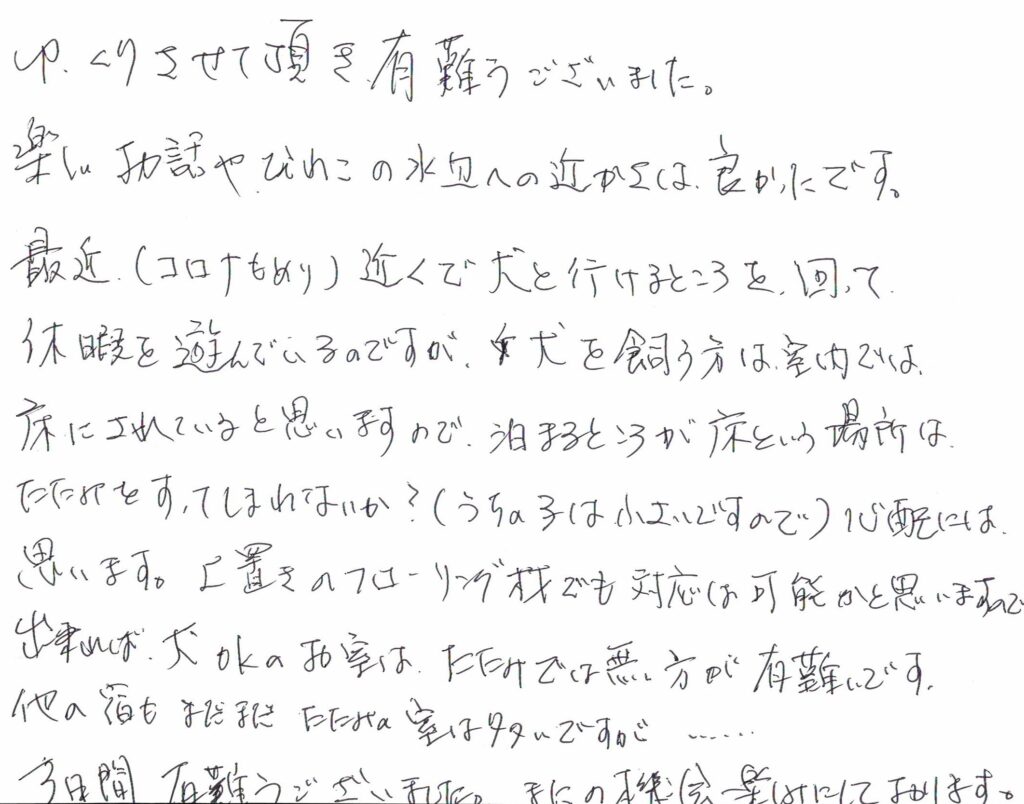 ゆっくりさせて頂き有難うございました。
楽しいお話やびわこの水辺への近かさは、良かったです。
最近、(コロナもあり)近くで犬と行けるところを、回って
休暇を遊んでいるのですが、犬を飼う方は、室内では、
床にされていると思いますので、泊まるところが床という場所は、
たたみをすってしまわないか?(うちの子は小さいですので)心配には、
思います。上置きのフローリング材でも対応は可能かと思いますので
出来れば、犬okのお室は、たたみでは無い方が有難いです。
他の宿もまだまだたたみの室は多いですが……
3日間有難うございました。またの機会楽しみにしております。